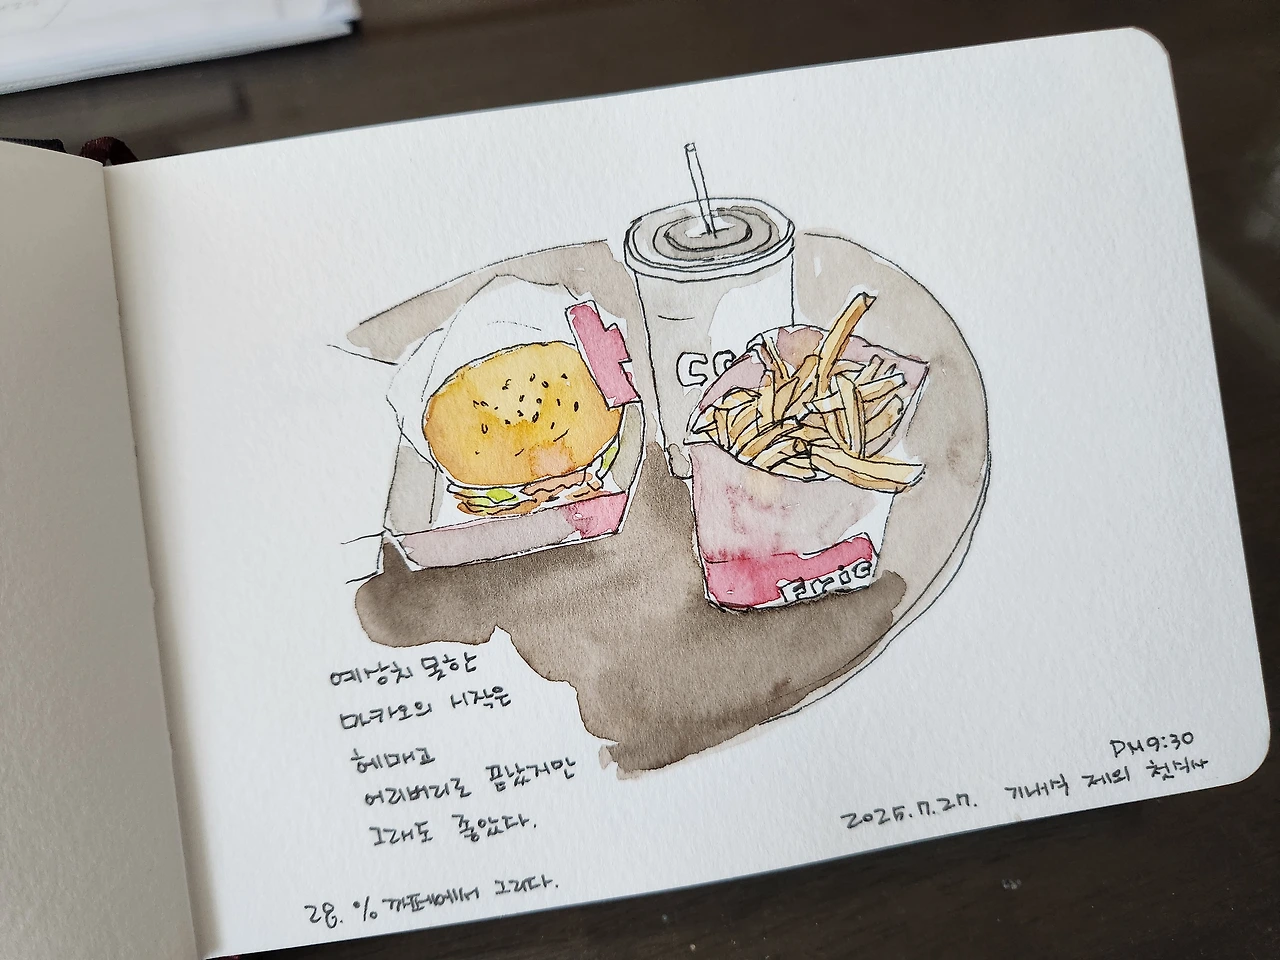 CO
Eric
예상치 못한
마카오의 시작은
헤매고
어리버리로 끝났지만
그래도 좋았다.
28. % 까페에서 그리다.
PM 9:30
2025.7.27. 기내식 제외 첫식사